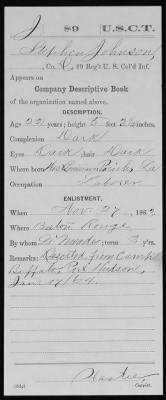 J 89 U.S.C.T.
Stephen Johnson
Co. , 89 Reg't U. S. Col'd Inf.
Appears on
Company Descriptive Book
of the organization named above.
DESCRIPTION.
Age 22 years; height 5 feet 3½ inches.
Complexion Dark
Eyes Dark; hair Dark
Where born Parish, La
Occupation Laborer
ENLISTMENT.
When Nov. 27, 1863
Where Baton Rouge
By whom ; term 3 y'rs.
Remarks: Deserted from Camp
Buffalo, Port Hudson,
Jany 17/64.
Copyist.